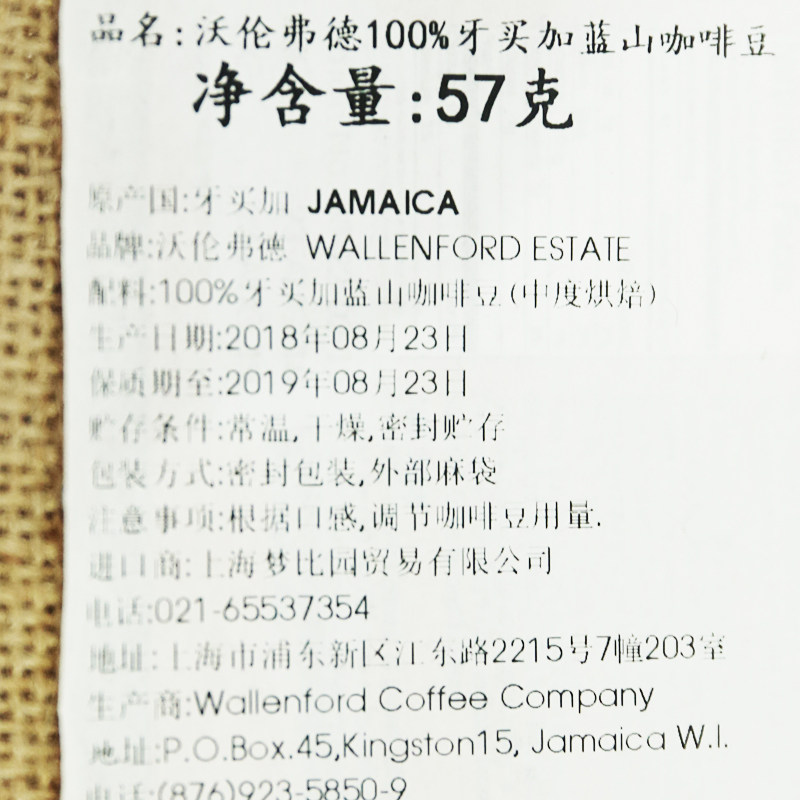 品名:沃伦弗德100%牙买加蓝山咖啡豆
净含量:57克
原产国:牙买加 JAMAICA
品牌:沃伦弗德 WALLENFORD ESTATE
配料:100%牙买加蓝山咖啡豆(中度烘焙)
生产日期:2018年08月23日
保质期至:2019年08月23日
贮存条件:常温,干燥,密封贮存
包装方式:密封包装,外部麻袋
注意事项:根据口感,调节咖啡豆用量.
进口商:上海梦比园贸易有限公司
电话:021-65537354
地址:上海市浦东新区江东路2215号7幢203室
生产商:Wallenford Coffee Company
地址:P.O.Box.45,Kingston15, Jamaica W.I.
电话:(876)923-5850-9